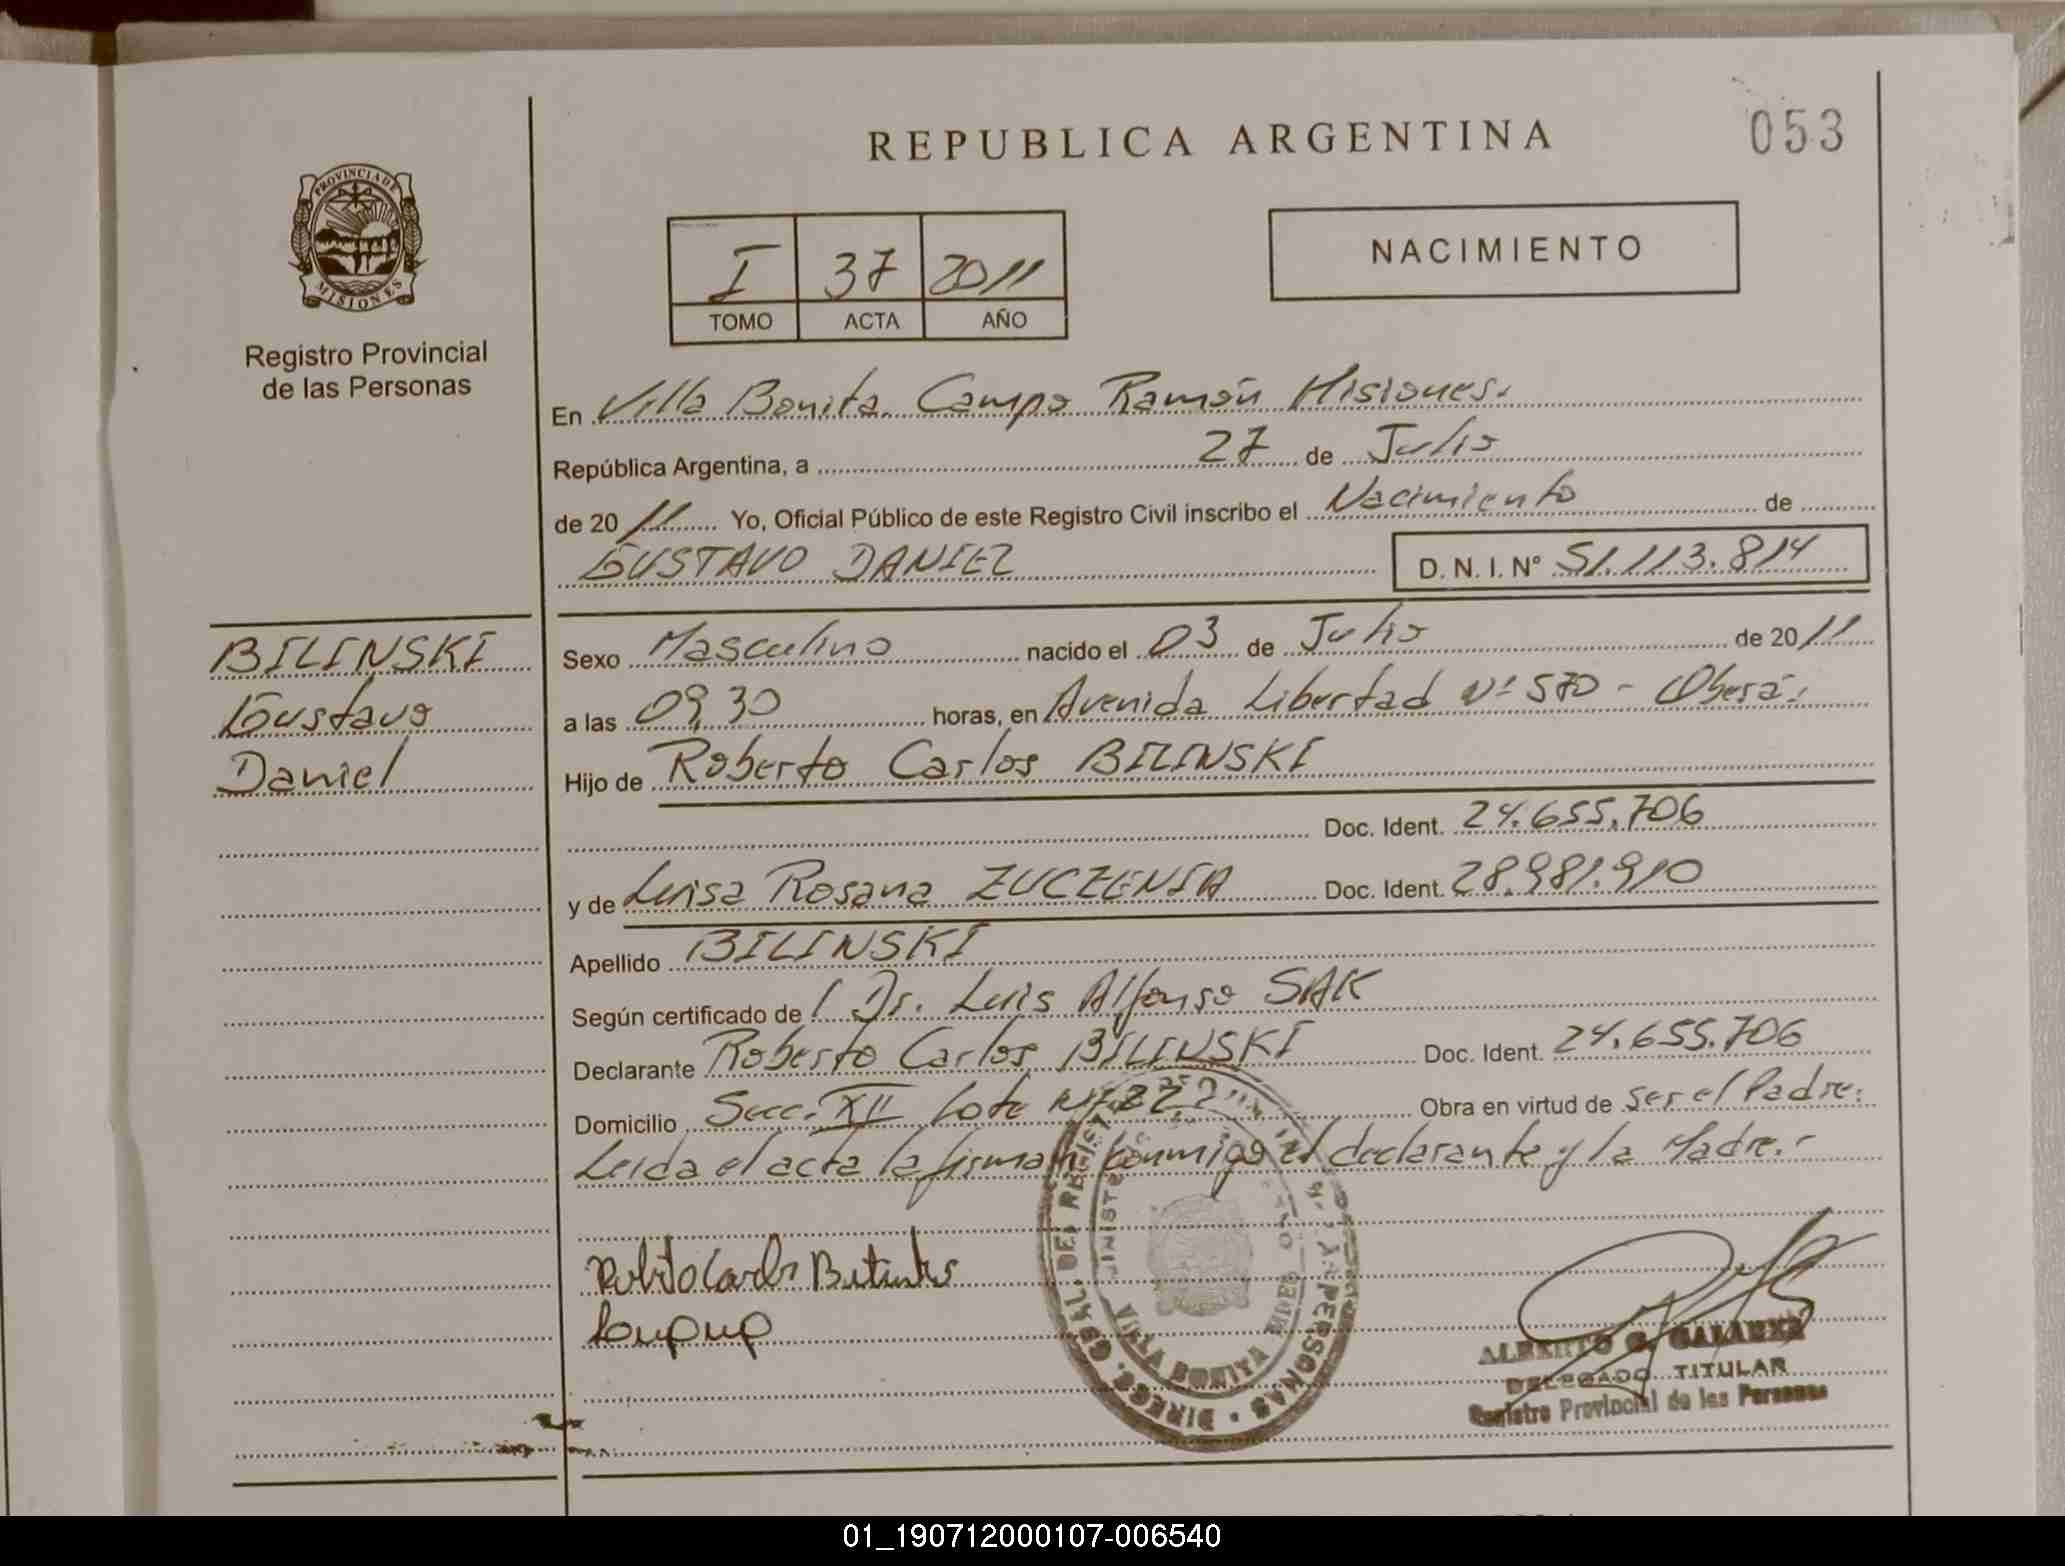 REPUBLICA ARGENTINA
053
PROVINCIA DE
MISIONES
Registro Provincial
de las Personas
I 37 2011
TOMO ACTA AÑO
NACIMIENTO
En Villa Bonita Campo Ramón Misiones.
República Argentina, a 27 de Julio
de 2011 Yo, Oficial Público de este Registro Civil inscribo el Nacimiento de
GUSTAVO DANIEL D. N. I. N° 51.113.814
BILINSKI
Gustavo
Daniel
Sexo Masculino nacido el 03 de Julio de 2011
a las 09,30 horas, en Avenida Libertad Nº 570 - Oberá.
Hijo de Roberto Carlos BILINSKI
Doc. Ident. 24.655.706
y de Luisa Rosana ZUCZENIA Doc. Ident. 28.981.910
Apellido BILINSKI
Según certificado de / Dr. Luis Alfonso SAK
Declarante Roberto Carlos BILINSKI Doc. Ident. 24.655.706
Domicilio Secc. XII Lote Obra en virtud de ser el Padre.
Leida el acta la firman conmigo el declarante y la Madre.-
DIREC. GRAL. DEL PERSONAS
VILLA BONITA
ALBERTO G.
DELEGADO TITULAR
Registro Provincial de las Personas
01_190712000107-006540